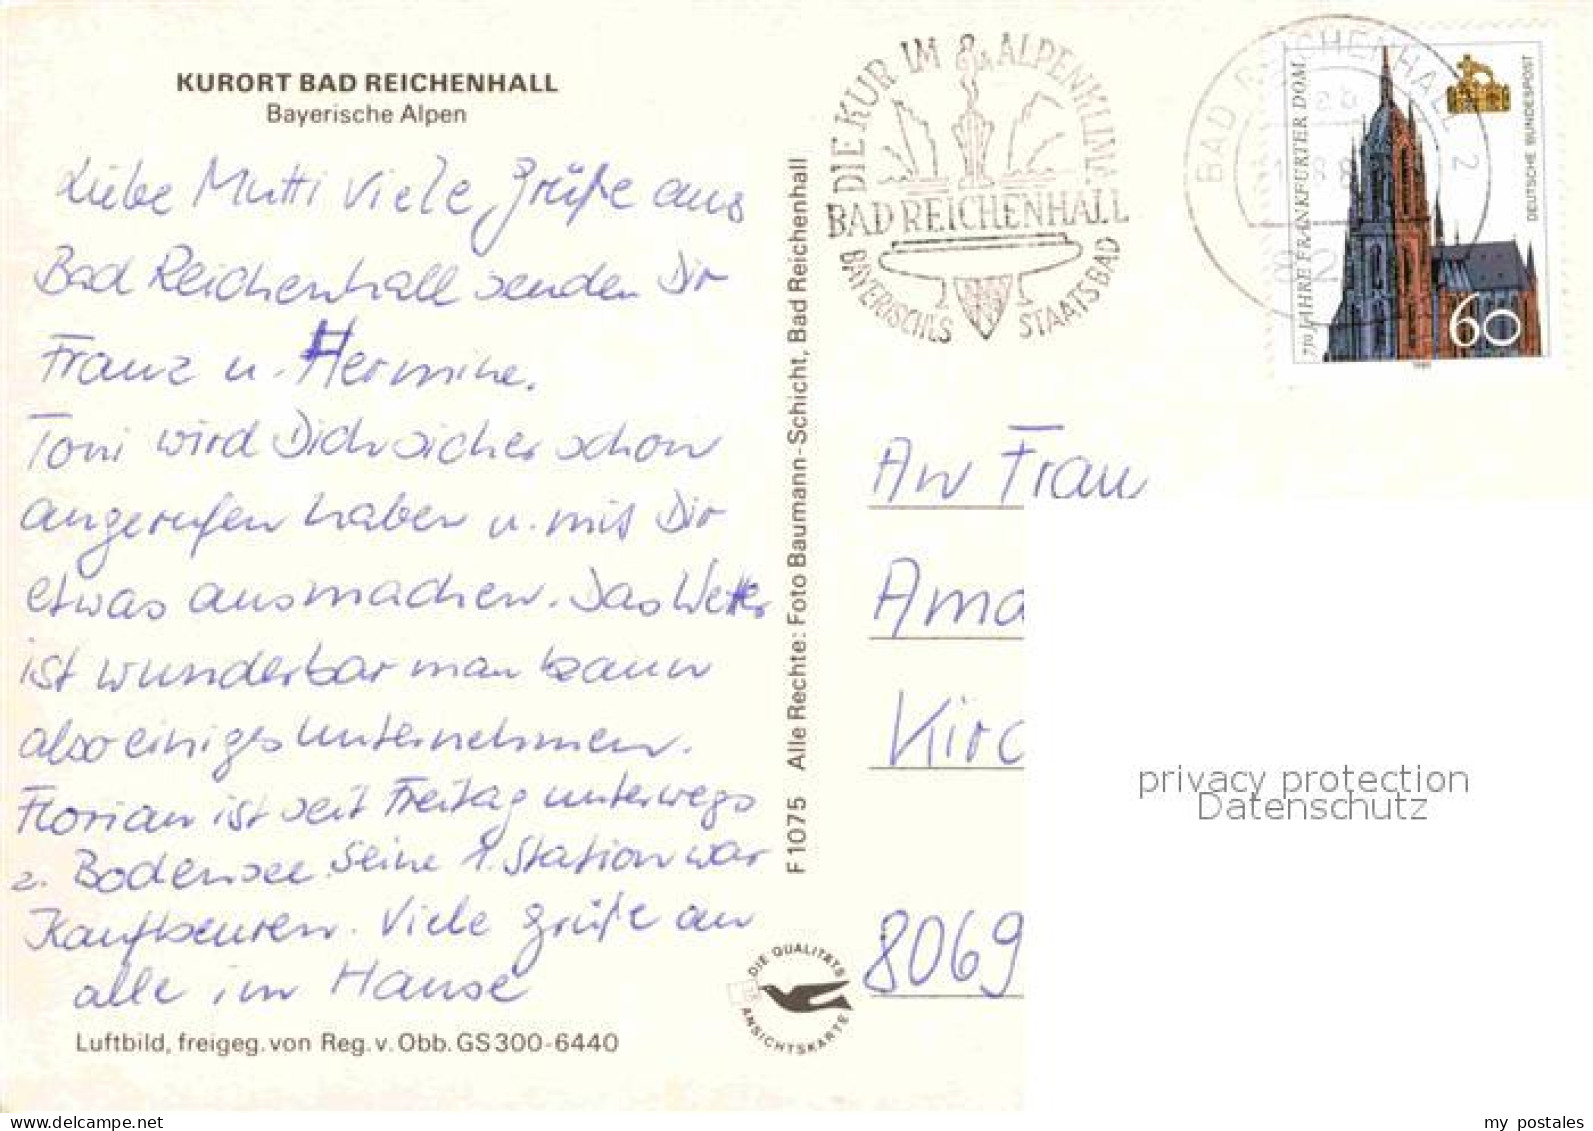 KURORT BAD REICHENHALL
Bayerische Alpen
Liebe Mutti Viele Grüße aus
Bad Reichenhall senden Dir
Franz u. Hermine.
Toni wird Dich sicher schon
angerufen haben u. mit Dir
etwas ausmachen. Das Wetter
ist wunderbar man kann
also einiges unternehmen.
Florian ist seit Freitag unterwegs
z. Bodensee. Seine 1. Station war
Kaufbeuren. Viele Grüße an
alle im Hause
Luftbild, freigeg. von Reg. v. Obb. GS 300-6440
F 1075 Alle Rechte: Foto Baumann-Schicht, Bad Reichenhall
DIE QUALITÄTS
ANSICHTSKARTE
DIE KUR IM ALPENKLIMA
BAD REICHENHALL
BAYERISCHES STAATSBAD
BAD REICHENHALL 2
750 JAHRE FRANKFURTER DOM
DEUTSCHE BUNDESPOST
60
An Frau
Ama
Kirc
8069
privacy protection
Datenschutz
my postales